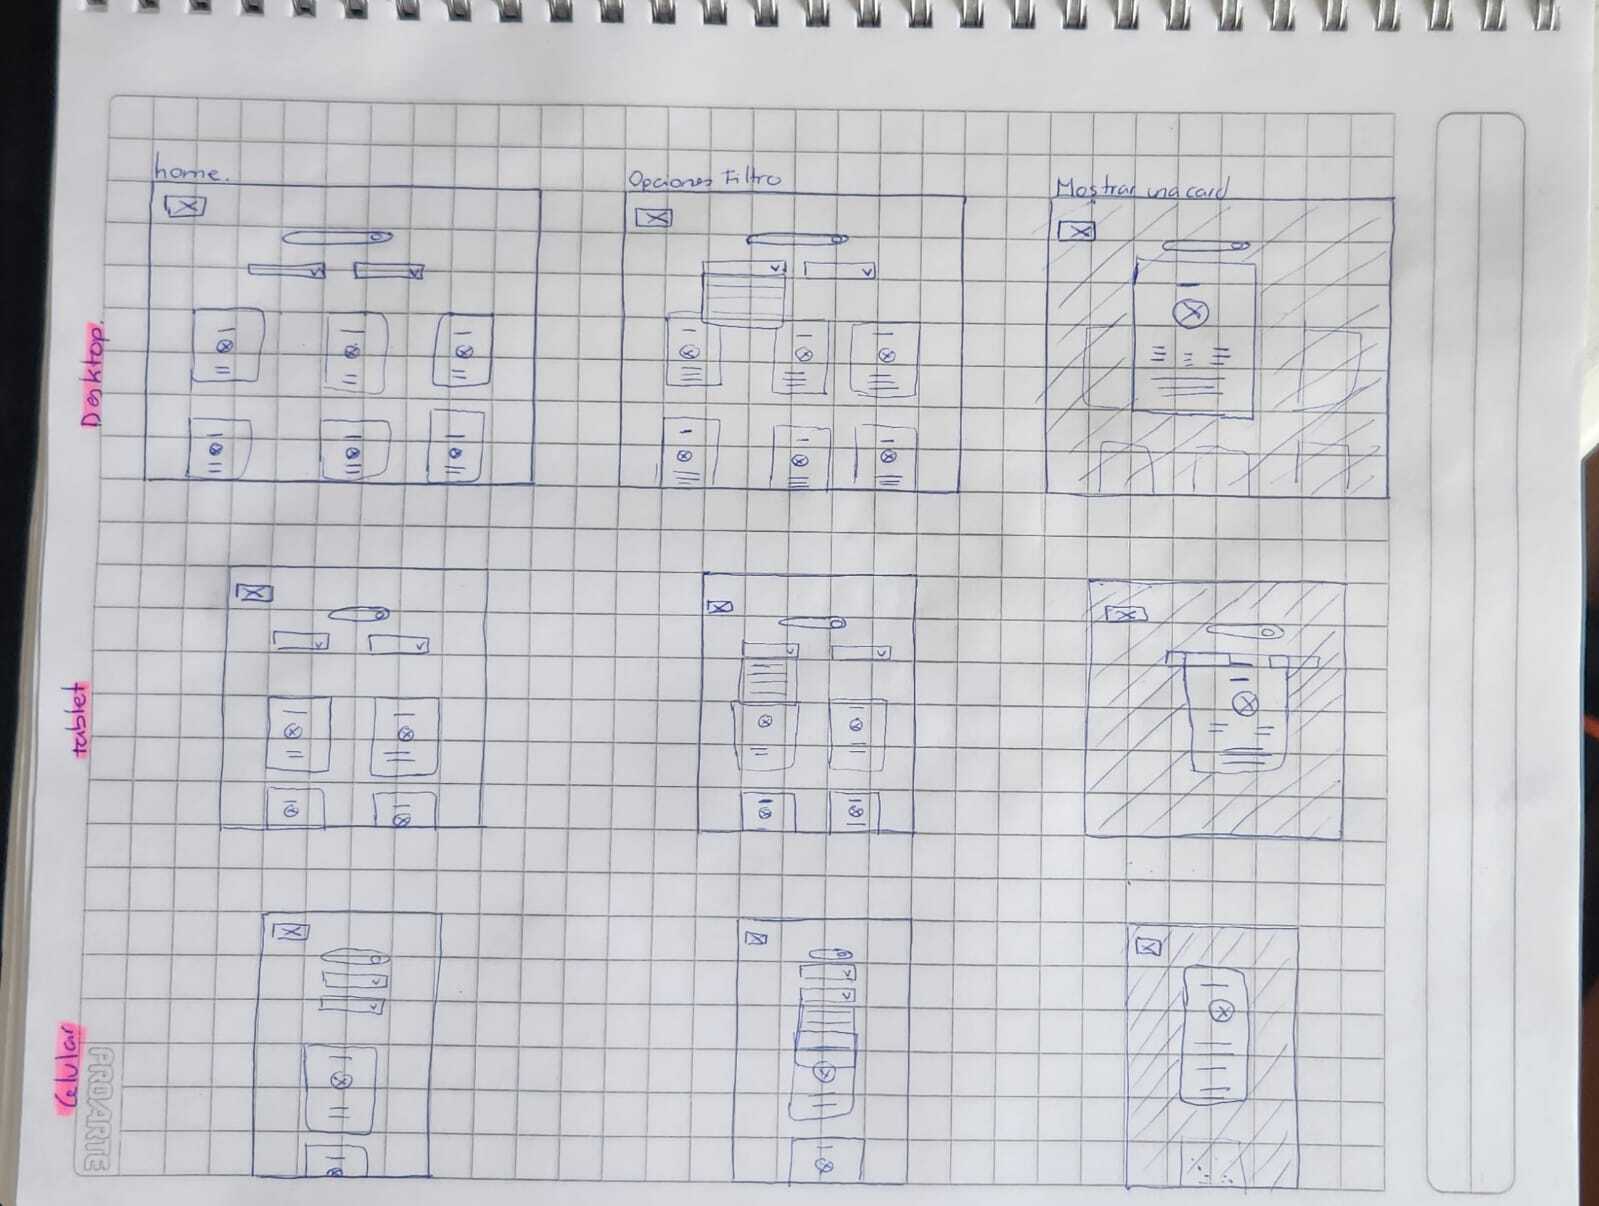 home.
Opciones Filtro
Mostrar una card
Desktop.
tablet
Celular
PROARTE